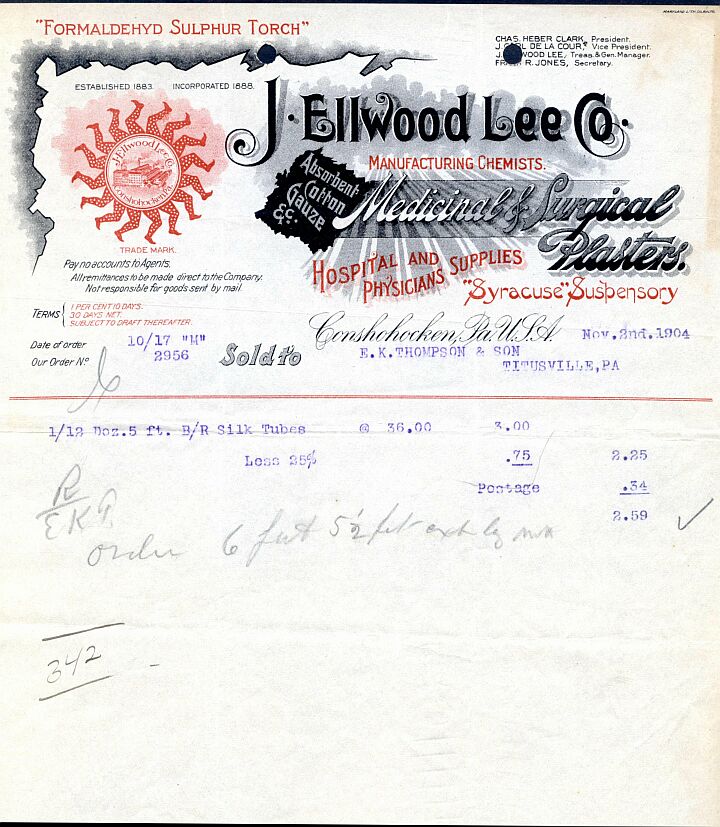 MARYLAND LITH. CO. BALTO.
"FORMALDEHYD SULPHUR TORCH"
CHAS. HEBER CLARK, President.
J. DE LA COUR, Vice President.
J. WOOD LEE, Treas. & Gen. Manager.
R. JONES, Secretary.
ESTABLISHED 1883. INCORPORATED 1888.
J. Ellwood Lee Co.
MANUFACTURING CHEMISTS.
J. Ellwood Lee Co.
Conshohocken, Pa.
TRADE MARK.
Absorbent
Cotton
Gauze
&c.
Medicinal & Surgical
Plasters.
HOSPITAL AND
PHYSICIANS SUPPLIES
"Syracuse" Suspensory
Pay no accounts to Agents.
All remittances to be made direct to the Company.
Not responsible for goods sent by mail.
TERMS
1 PER CENT 10 DAYS.
30 DAYS NET.
SUBJECT TO DRAFT THEREAFTER.
Conshohocken, Pa. U.S.A. Nov. 2nd. 1904
Date of order 10/17 "M"
Our Order No. 2956
Sold to E.K. THOMPSON & SON
TITUSVILLE, PA
1/12 Doz. 5 ft. B/R Silk Tubes @ 36.00 3.00
Less 25% .75 2.25
Postage .34
2.59
R
E K T
order 6 feet 5½ feet
342